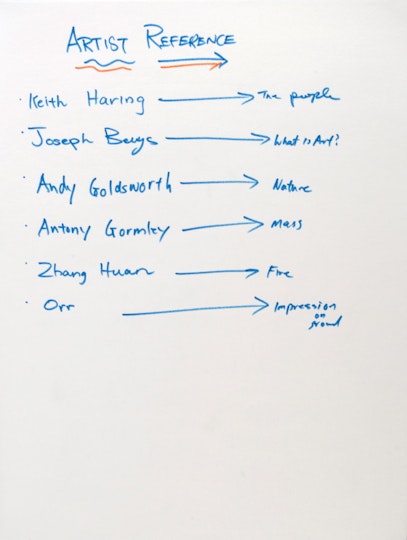 ARTIST REFERENCE
· Keith Haring → The people
· Joseph Beuys → What is Art?
· Andy Goldsworth → Nature
· Antony Gormley → Mass
· Zhang Huan → Fire
· Orr → Impression
on
ground